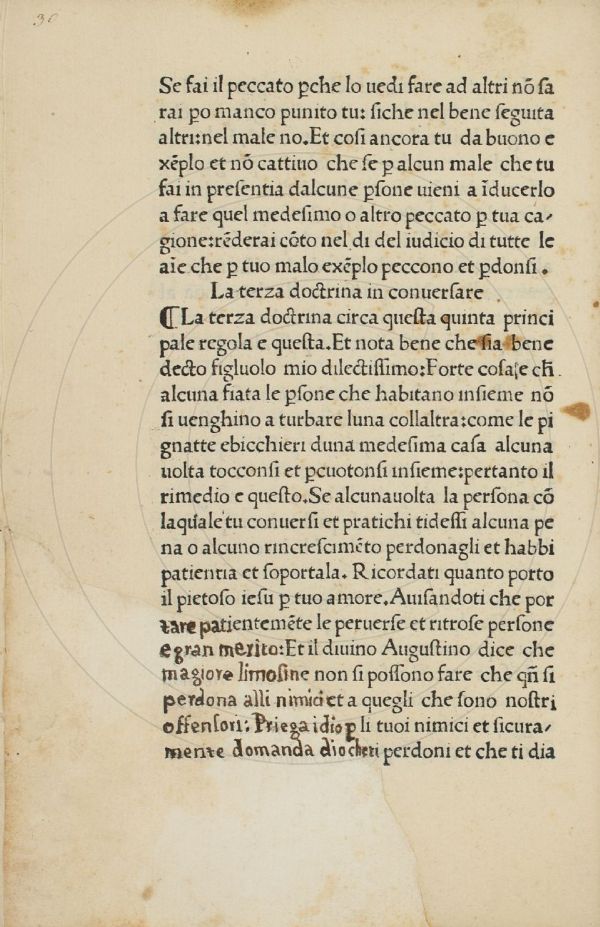 36
Se fai il peccato ꝑche lo uedi fare ad altri nõ ſa
rai ꝑo manco punito tu: ſiche nel bene ſeguita
altri:nel male no.Et coſi ancora tu da buono e
xẽplo et nõ cattiuo che ſe ꝑ alcun male che tu
fai in preſentia dalcune ꝑſone uieni a ĩducerlo
a fare quel medeſimo o altro peccato ꝑ tua ca-
gione:rẽderai cõto nel di del iudicio di tutte le
aĩe che ꝑ tuo malo exẽplo peccono et ꝑdonſi .
La terza doctrina in conuerſare
¶ La terza doctrina circa queſta quinta princi
pale regola e queſta.Et nota bene che ſia bene
decto figluolo mio dilectiſſimo:Forte coſa|e ch̄
alcuna fiata le ꝑſone che habitano inſieme nõ
ſi uenghino a turbare luna collaltra:come le pi
gnatte ebicchieri duna medeſima caſa alcuna
uolta tocconſi et ꝑcuotonſi inſieme:pertanto il
rimedio e queſto.Se alcunauolta la perſona cõ
laquale tu conuerſi et pratichi tideſſi alcuna pe
na o alcuno rincreſcimẽto perdonagli et habbi
patientia et ſoportala. Ricordati quanto porto
il pietoſo ieſu ꝑ tuo amore.Auiſandoti che por
tare patientemẽte le peruerſe et ritroſe perſone
e gran merito:Et il diuino Auguſtino dice che
magiore limoſine non ſi poſſono fare che qñ ſi
perdona alli nimici et a quegli che ſono noſtri
offenſori: Priega idio ꝑ li tuoi nimici et ſicura-
mente domanda dio cheti perdoni et che ti dia